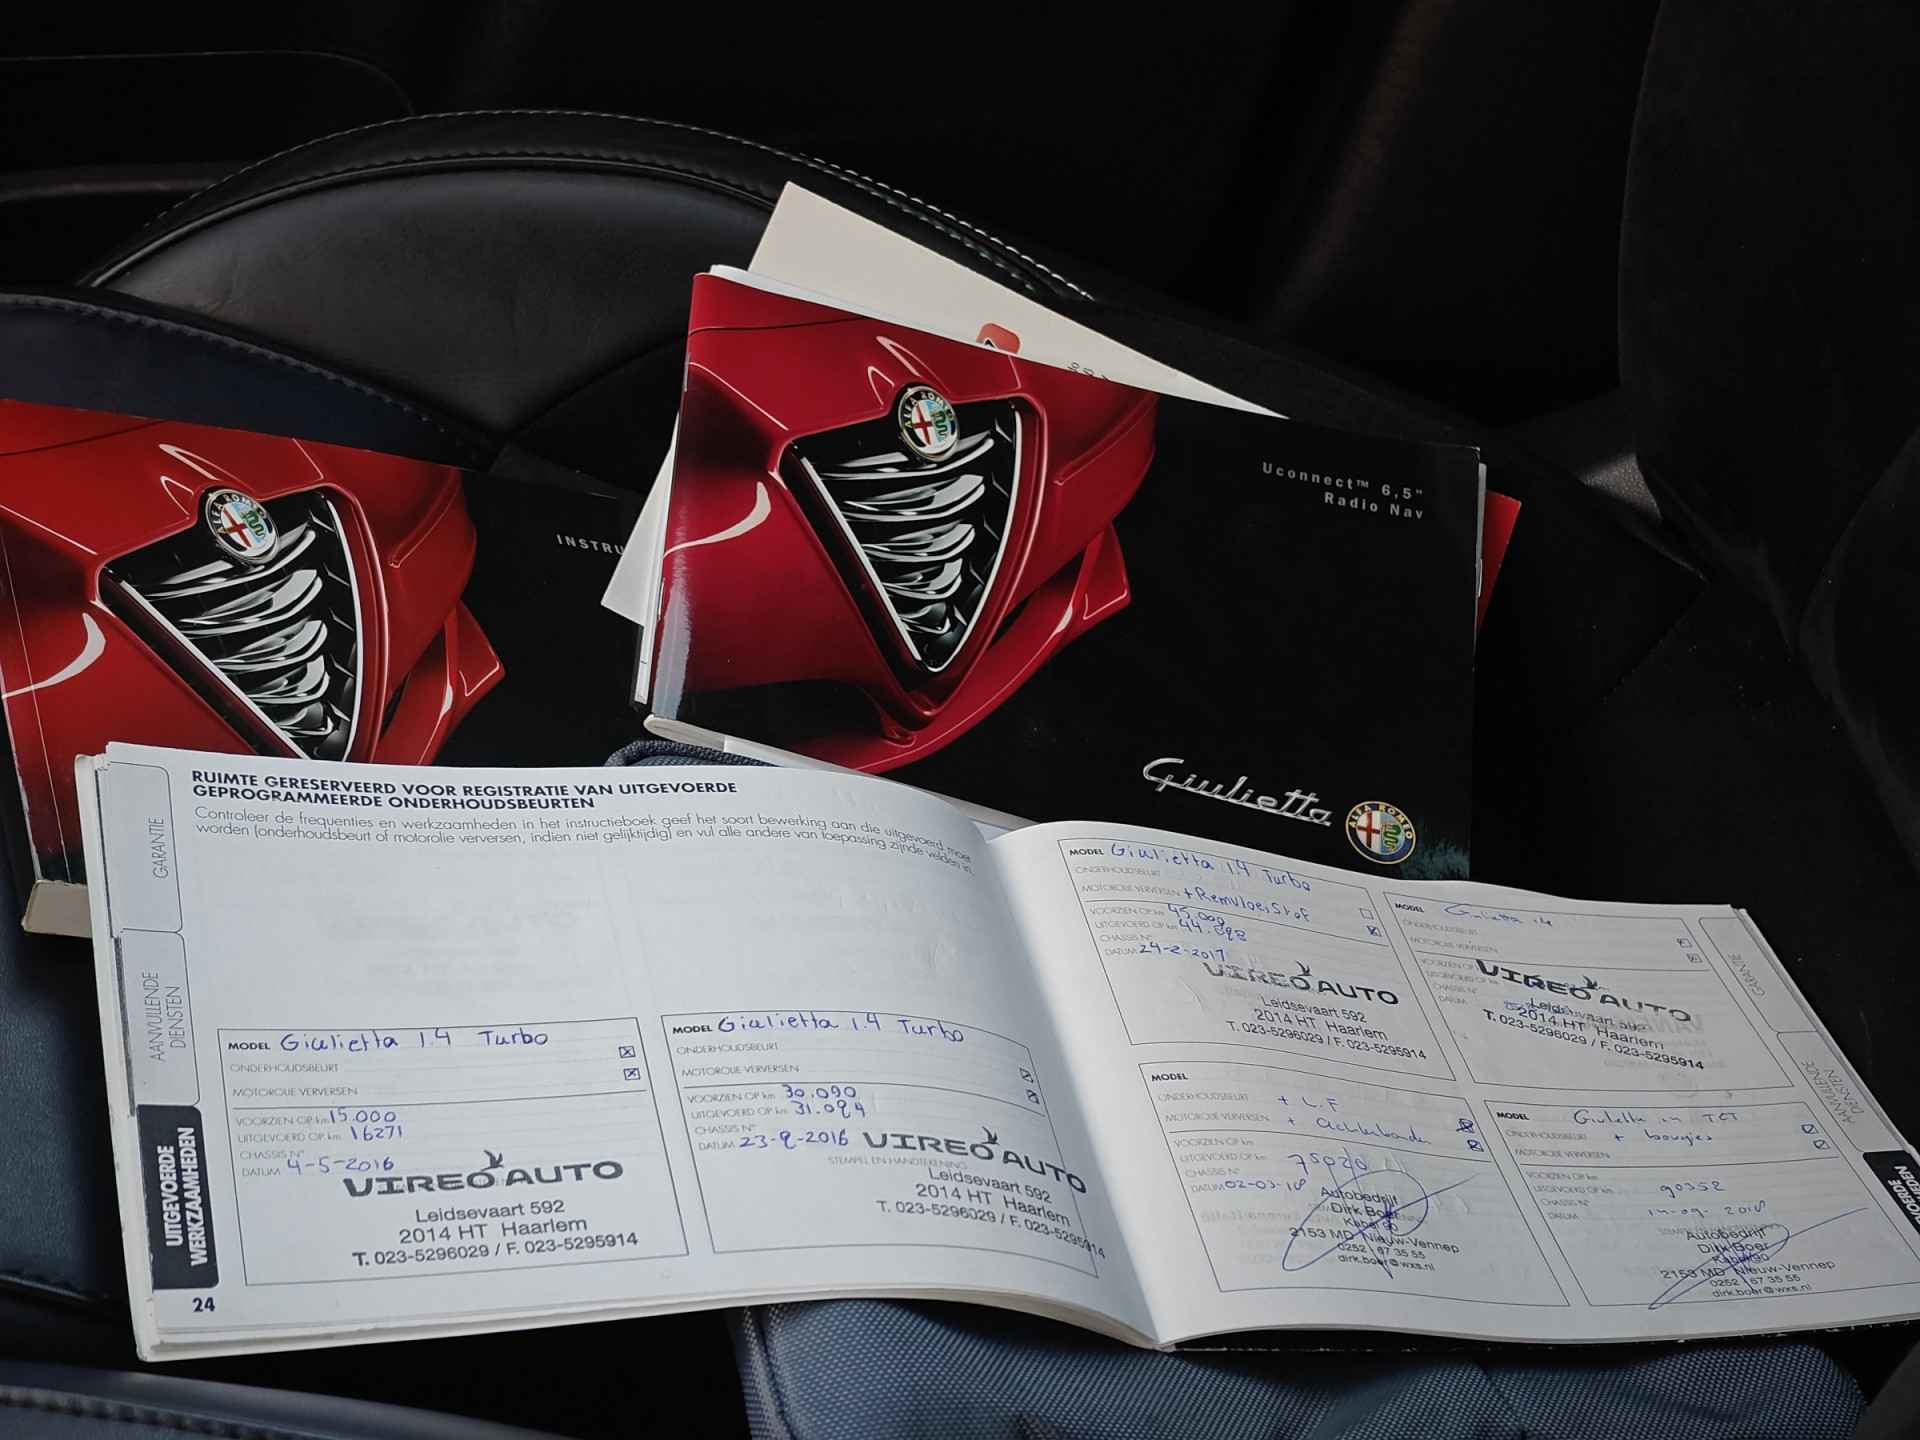 Uconnect™ 6,5"
Radio Nav
ALFA ROMEO
INSTRU
ALFA ROMEO
Giulietta
ALFA ROMEO
RUIMTE GERESERVEERD VOOR REGISTRATIE VAN UITGEVOERDE
GEPROGRAMMEERDE ONDERHOUDSBEURTEN
Controleer de frequenties en werkzaamheden in het instructieboek geef het soort bewerking aan die uitgevoerd moet
worden (onderhoudsbeurt of motorolie verversen, indien niet gelijktijdig) en vul alle andere van toepassing zijnde velden in.
GARANTIE
AANVULLENDE
DIENSTEN
UITGEVOERDE
WERKZAAMHEDEN
MODEL Giulietta 1.4 Turbo
ONDERHOUDSBEURT
MOTOROLIE VERVERSEN
VOORZIEN OP km 15.000
UITGEVOERD OP km 16271
CHASSIS N°
DATUM 4-5-2016
VIREO AUTO
Leidsevaart 592
2014 HT Haarlem
T. 023-5296029 / F. 023-5295914
24
MODEL Giulietta 1.4 Turbo
ONDERHOUDSBEURT
MOTOROLIE VERVERSEN
VOORZIEN OP km 30.000
UITGEVOERD OP km 31.094
CHASSIS N°
DATUM 23-9-2016
STEMPEL EN HANDTEKENING
VIREO AUTO
Leidsevaart 592
2014 HT Haarlem
T. 023-5296029 / F. 023-5295914
MODEL Giulietta 1.4 Turbo
ONDERHOUDSBEURT
MOTOROLIE VERVERSEN + Remvloeistof
VOORZIEN OP km 45.000
UITGEVOERD OP km 44.898
CHASSIS N°
DATUM 24-2-2017
VIREO AUTO
Leidsevaart 592
2014 HT Haarlem
T. 023-5296029 / F. 023-5295914
MODEL Giulietta 1.4
ONDERHOUDSBEURT
MOTOROLIE VERVERSEN
VOORZIEN OP
UITGEVOERD OP km
CHASSIS N°
DATUM
VIREO AUTO
Leidsevaart 592
2014 HT Haarlem
T. 023-5296029 / F. 023-5295914
MODEL
ONDERHOUDSBEURT + L.F
MOTOROLIE VERVERSEN + Achterbanden
VOORZIEN OP km
UITGEVOERD OP km 75020
CHASSIS N°
DATUM 02-03-18
Autobedrijf
Dirk Boer
Kabel 90
2153 MD Nieuw-Vennep
0252 67 35 55
dirk.boer@wxs.nl
MODEL Giulietta
ONDERHOUDSBEURT + bougies
MOTOROLIE VERVERSEN
VOORZIEN OP km
UITGEVOERD OP km 90352
CHASSIS N°
DATUM
Autobedrijf
Dirk Boer
Kabel 90
2153 MD Nieuw-Vennep
0252 67 35 55
dirk.boer@wxs.nl
GARANTIE
AANVULLENDE
DIENSTEN